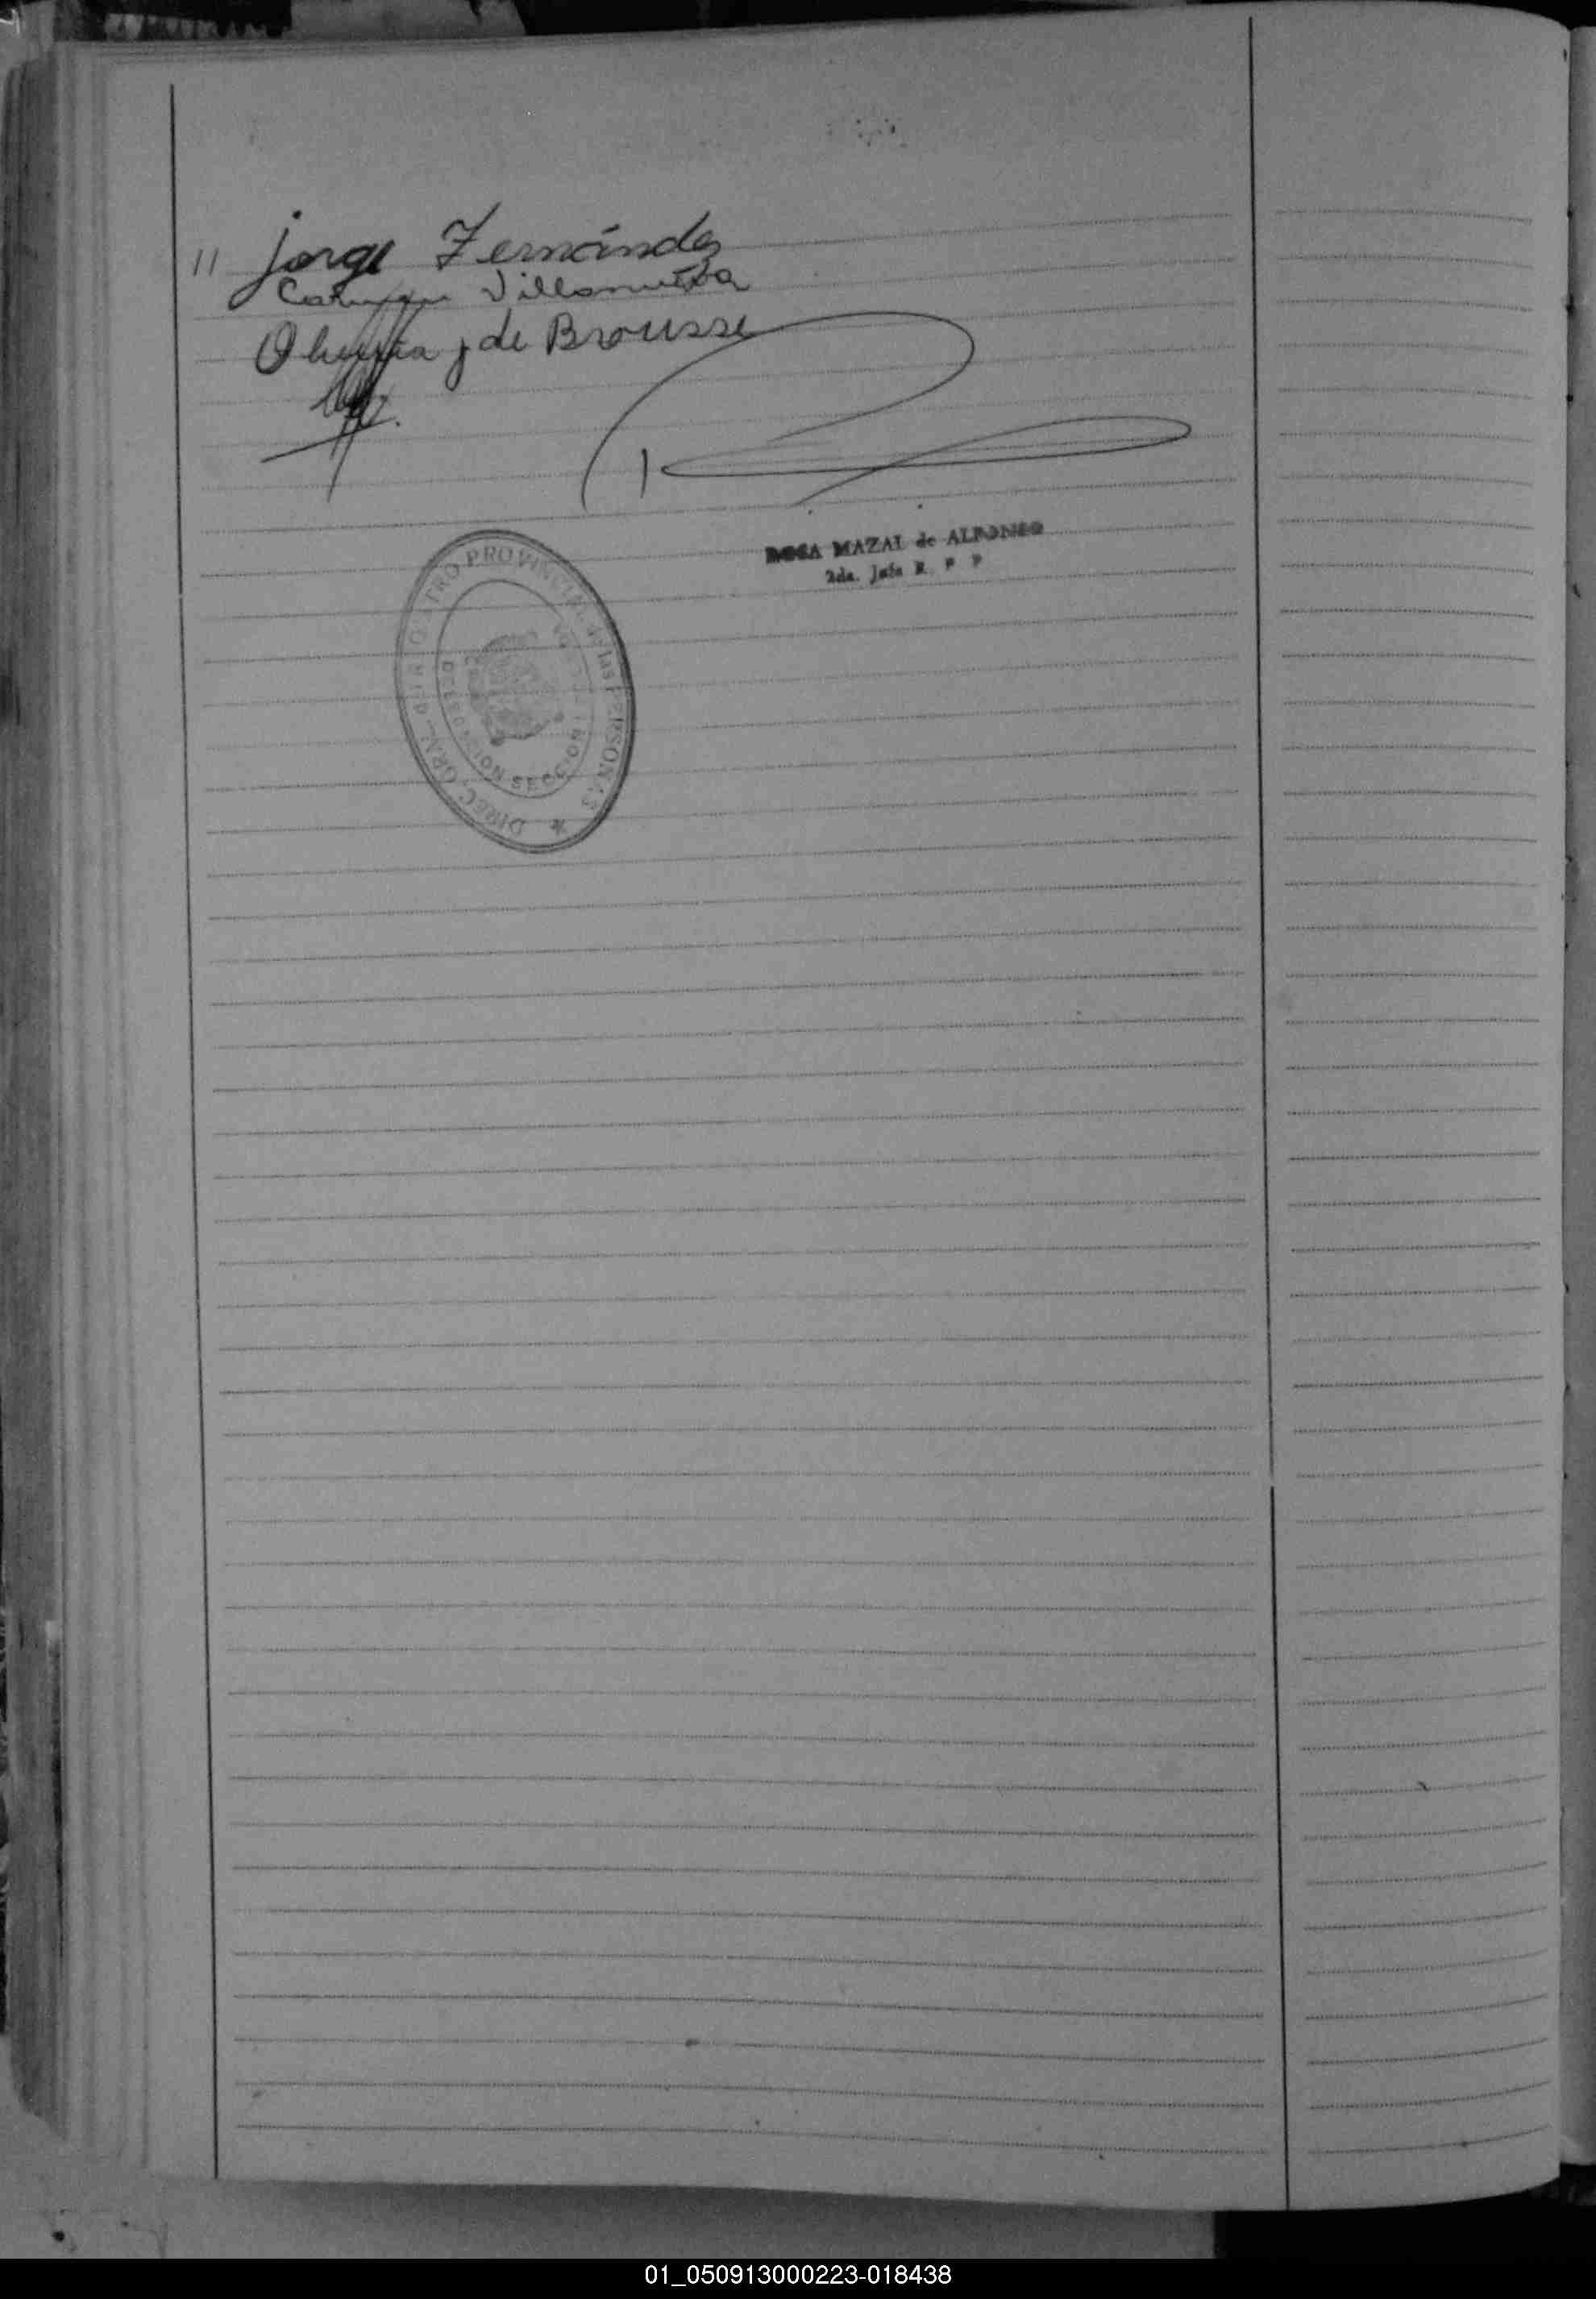 11 Jorge Fernández
Villanueva
de Brousse
ROSA MAZAL de ALFONSO
2da. Jefa R. P. P
DIREC. GRAL. DEL REGISTRO PROVINCIAL de las PERSONAS
SECCION
01_050913000223-018438